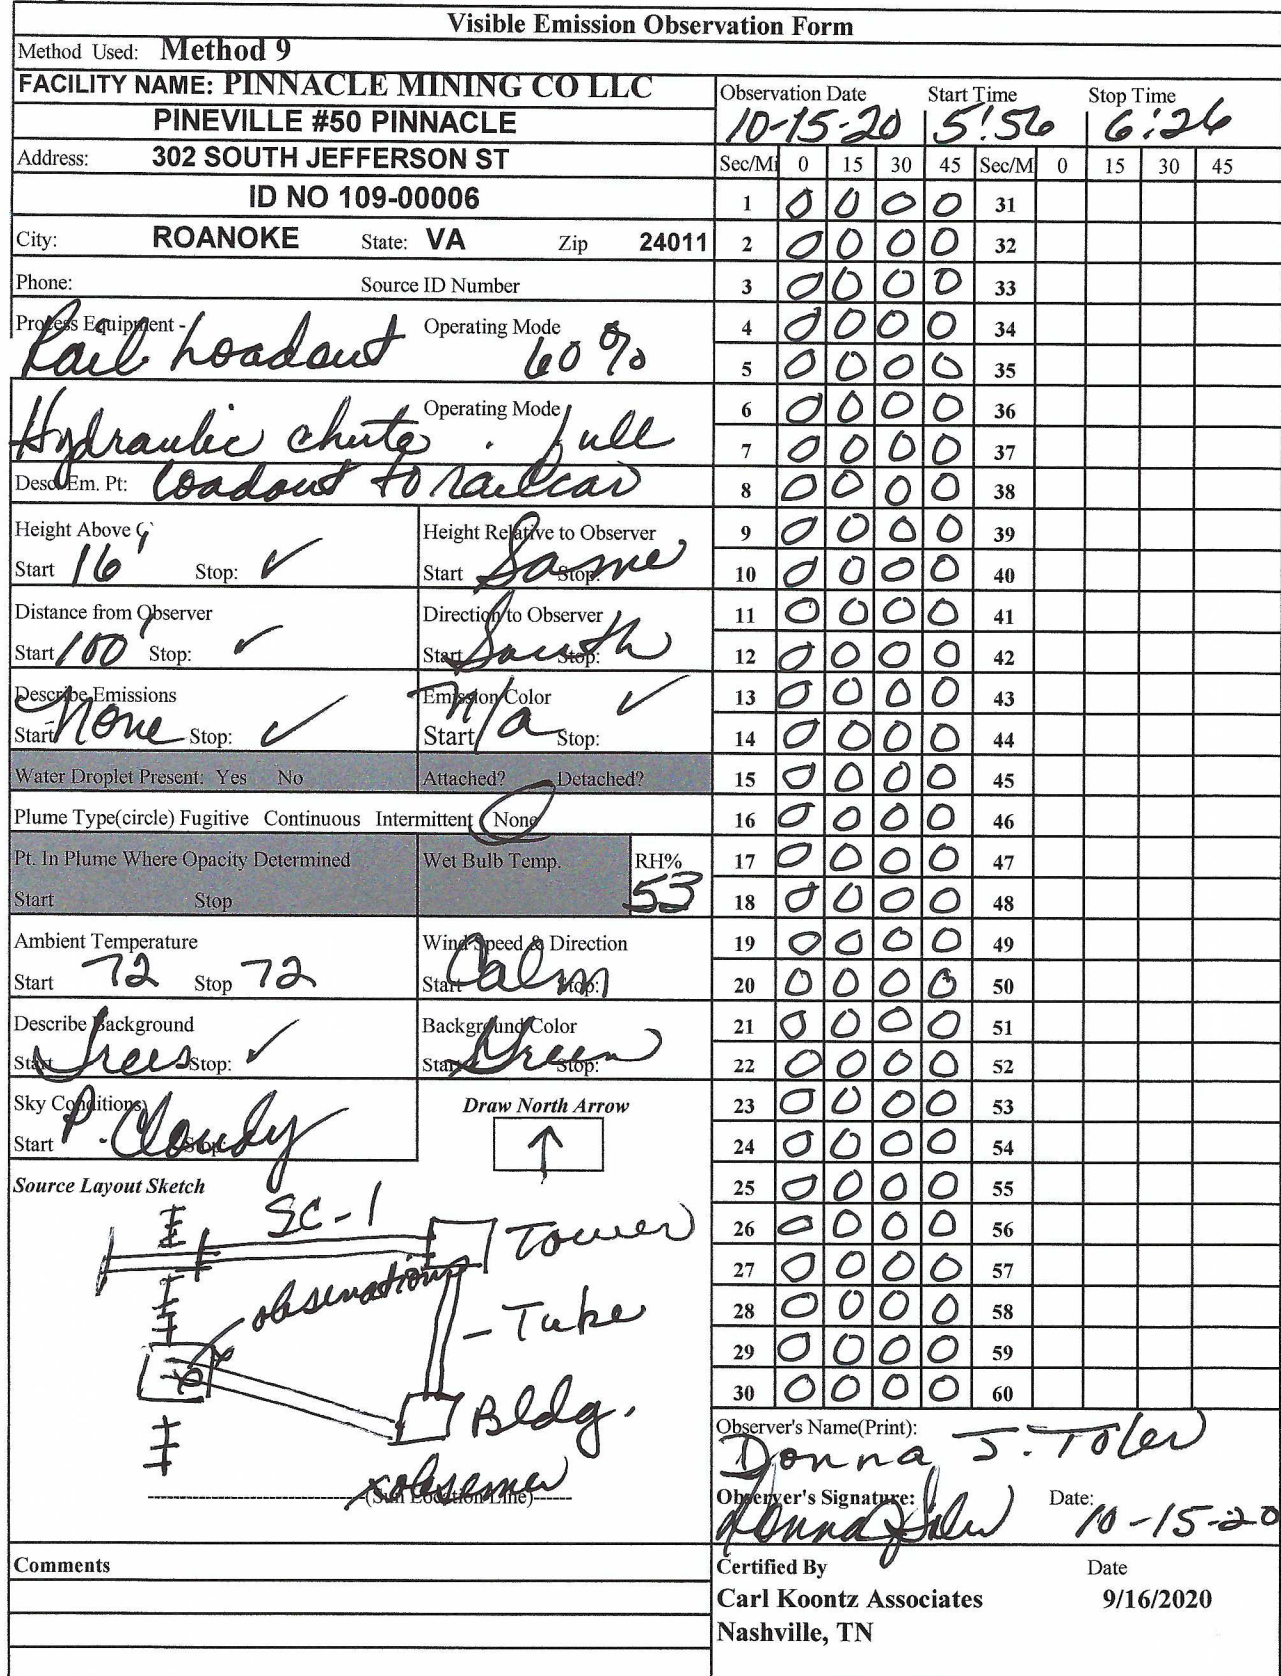 Visible Emission Observation Form
Method Used: Method 9
FACILITY NAME: PINNACLE MINING CO LLC
PINEVILLE #50 PINNACLE
Address: 302 SOUTH JEFFERSON ST
ID NO 109-00006
City: ROANOKE State: VA Zip 24011
Phone: Source ID Number
Process Equipment - Operating Mode
Rail Loadout 60%
Operating Mode
Hydraulic chute . full
Desc. Em. Pt: loadout to railcar
Height Above G Height Relative to Observer
Start 16' Stop: ✓ Start Same Stop:
Distance from Observer Direction to Observer
Start 100' Stop: ✓ Start South Stop:
Describe Emissions Emission Color
Start None Stop: ✓ Start n/a Stop: ✓
Water Droplet Present: Yes No Attached? Detached?
Plume Type(circle) Fugitive Continuous Intermittent None
Pt. In Plume Where Opacity Determined Wet Bulb Temp. RH%
Start Stop 53
Ambient Temperature Wind Speed & Direction
Start 72 Stop 72 Start Calm Stop:
Describe Background Background Color
Start Trees Stop: ✓ Start Green Stop:
Sky Conditions Draw North Arrow
Start P. Cloudy Stop: ↑
Source Layout Sketch
SC-1
Tower
observation
- Tube
Bldg.
x observer
(Sun Location Line)
Comments
Observation Date Start Time Stop Time
10-15-20 5:56 6:26
Sec/Mi 0 15 30 45 Sec/M 0 15 30 45
1 0 0 0 0 31
2 0 0 0 0 32
3 0 0 0 0 33
4 0 0 0 0 34
5 0 0 0 0 35
6 0 0 0 0 36
7 0 0 0 0 37
8 0 0 0 0 38
9 0 0 0 0 39
10 0 0 0 0 40
11 0 0 0 0 41
12 0 0 0 0 42
13 0 0 0 0 43
14 0 0 0 0 44
15 0 0 0 0 45
16 0 0 0 0 46
17 0 0 0 0 47
18 0 0 0 0 48
19 0 0 0 0 49
20 0 0 0 0 50
21 0 0 0 0 51
22 0 0 0 0 52
23 0 0 0 0 53
24 0 0 0 0 54
25 0 0 0 0 55
26 0 0 0 0 56
27 0 0 0 0 57
28 0 0 0 0 58
29 0 0 0 0 59
30 0 0 0 0 60
Observer's Name(Print):
Donna J. Toler
Observer's Signature: Date:
Donna J Toler 10-15-20
Certified By Date
Carl Koontz Associates 9/16/2020
Nashville, TN